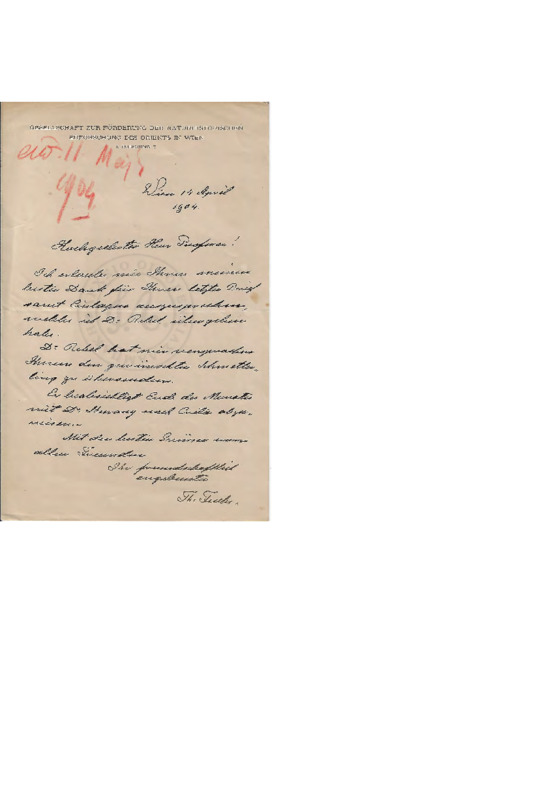 GESELLSCHAFT ZUR FÖRDERUNG DER NATURHISTORISCHEN
ERFORSCHUNG DES ORIENTS IN WIEN
11 Mai
1904
Wien 14 April
1904.
Hochgeehrter Herr Professor!
Ich erlaube mir Ihnen meinen
besten Dank für Ihren letzten Brief
samt Einlagen auszusprechen,
welche ich Dr. Rebel übergeben
habe.
Dr. Rebel hat mir versprochen
Ihnen den gewünschten Schmetter-
ling zu übersenden.
Er beabsichtigt Ende des Monates
mit Dr. nach abzu-
reisen.
Mit den besten Grüssen von
allen Freunden
Ihr freundschaftlich
ergebenster
Th. Fuchs.